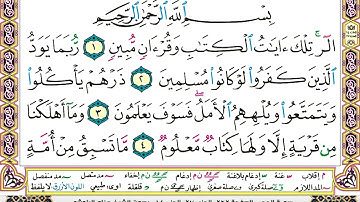 بِسْمِ ٱللَّهِ ٱلرَّحْمَٰنِ ٱلرَّحِيمِ
الٓر ۚ تِلْكَ ءَايَٰتُ ٱلْكِتَٰبِ وَقُرْءَانٍ مُّبِينٍ ١ رُّبَمَا يَوَدُّ
ٱلَّذِينَ كَفَرُوا۟ لَوْ كَانُوا۟ مُسْلِمِينَ ٢ ذَرْهُمْ يَأْكُلُوا۟
وَيَتَمَتَّعُوا۟ وَيُلْهِهِمُ ٱلْأَمَلُ ۖ فَسَوْفَ يَعْلَمُونَ ٣ وَمَآ أَهْلَكْنَا
مِن قَرْيَةٍ إِلَّا وَلَهَا كِتَابٌ مَّعْلُومٌ ٤ مَّا تَسْبِقُ مِنْ أُمَّةٍ